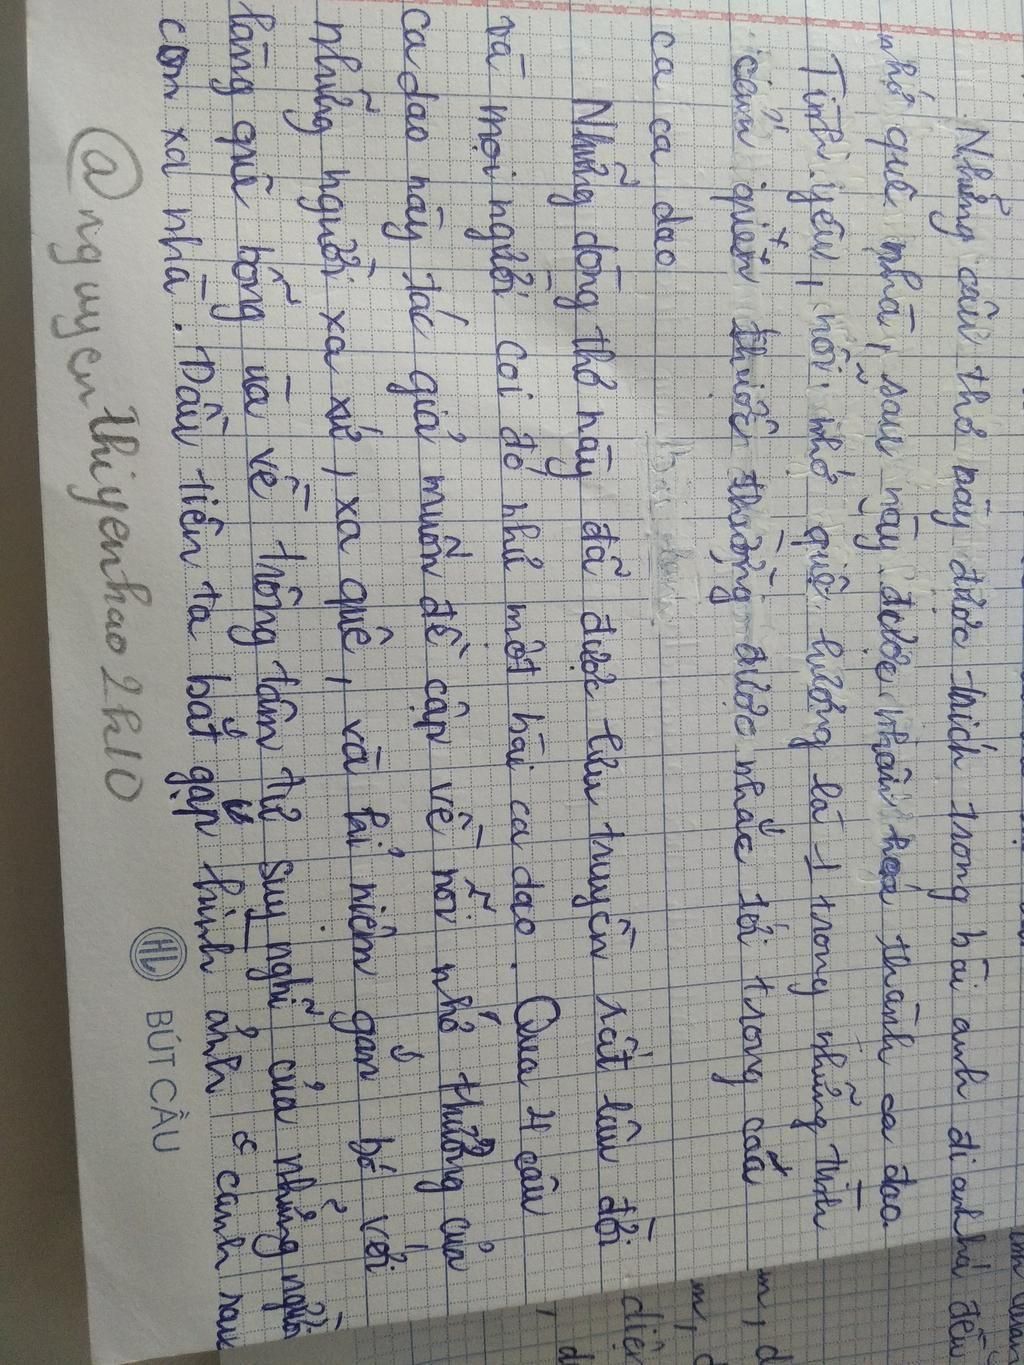 Những câu thơ này được trích trong bài anh đi anh nhớ đến
nhớ quê nhà, sau này được nhân hoá thành ca dao
Tình yêu, nỗi nhớ quê hương là 1 trong những tình
cảm quen thuộc thường được nhắc tới trong các
ca ca dao
Những dòng thơ này đã được lưu truyền rất lâu đời
và mọi người coi đó như một bài ca dao. Qua 4 câu
ca dao này tác giả muốn đề cập về nỗi nhớ thương của
những người xa xứ, xa quê, và kỉ niệm gắn bó với
làng quê bỗng ùa về trong tâm tư suy nghĩ của những người
con xa nhà. Đầu tiên ta bắt gặp hình ảnh canh rau
@nguyenthiyenhao2k10
HL BÚT CẦU
diện